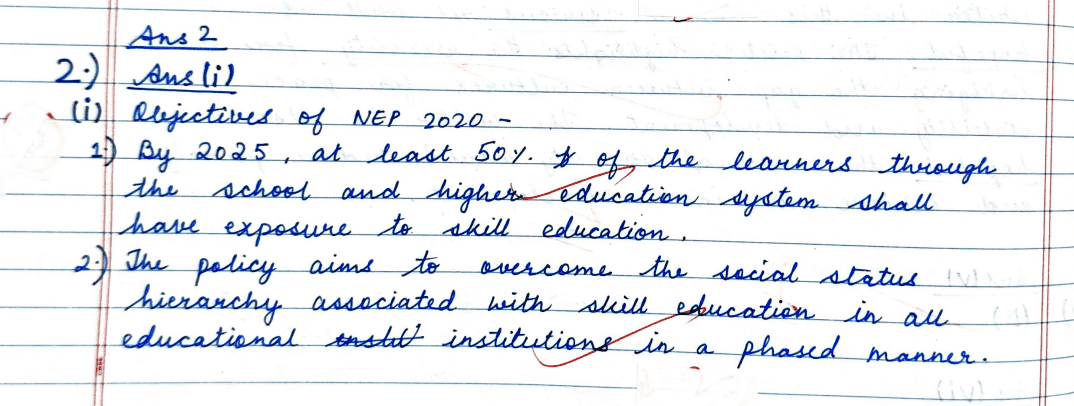 Ans 2
2.) Ans (i)
(i) Objectives of NEP 2020 -
1) By 2025, at least 50%. of the learners through
the school and higher education system shall
have exposure to skill education.
2.) The policy aims to overcome the social status
hierarchy associated with skill education in all
educational institutions in a phased manner.